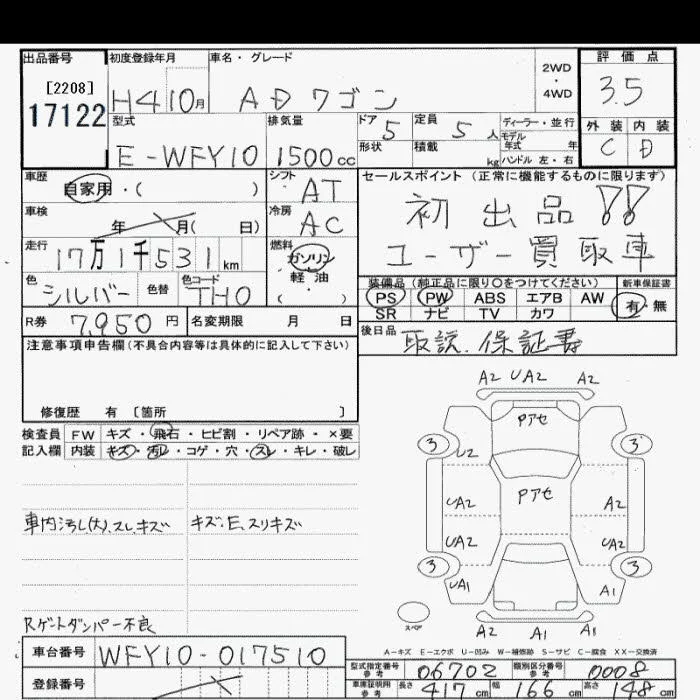 出品番号 初度登録年月 車名・グレード 評価点
[2208] 2WD・4WD
17122 H4 10月 ADワゴン 3.5
型式 排気量 ドア 5 定員 5人 ディーラー・並行 外装 内装
モデル年式 年
E-WFY10 1500cc 形状 積載 kg ハンドル 左・右 C D
車歴 シフト セールスポイント (正常に機能するものに限ります)
自家用・( ) AT 初出品!!
車検 冷房
年 月( 日) AC
走行 燃料 ユーザー買取車
17万1千531km ガソリン
色 色替 色コード 軽油 装備品 (純正品に限り○をつけてください) 新車保証書
シルバー TH0 ( ・ ) PS PW ABS エアB AW 有・無
R券 7,950円 名変期限 月 日 SR ナビ TV カワ
注意事項申告欄(不具合内容等は具体的に記入して下さい) 後日品 取説.保証書
修復歴 有 [箇所 ]
検査員 FW キズ・飛石・ヒビ割・リペア跡・×要
記入欄 内装 キズ・汚レ・コゲ・穴・スレ・キレ・破レ
A2 UA2 A2
Pアセ
3 3
U2
Pアセ
UA2 A2
車内汚し(大)、スレ、キズ キズ:E、スリキズ
UA2 UA2
3 3
UA1 A1
スペア
Rゲートダンパー不良 A2 A1 A1
A-キズ E-エクボ U-凹み W-補修跡 S-サビ C-腐食 XX-交換済
車台番号 WFY10-017510
型式指定番号 参考 06702 類別区分番号 参考 0008
登録番号
車庫証明用 参考 長さ 417cm 幅 166cm 高さ 148cm